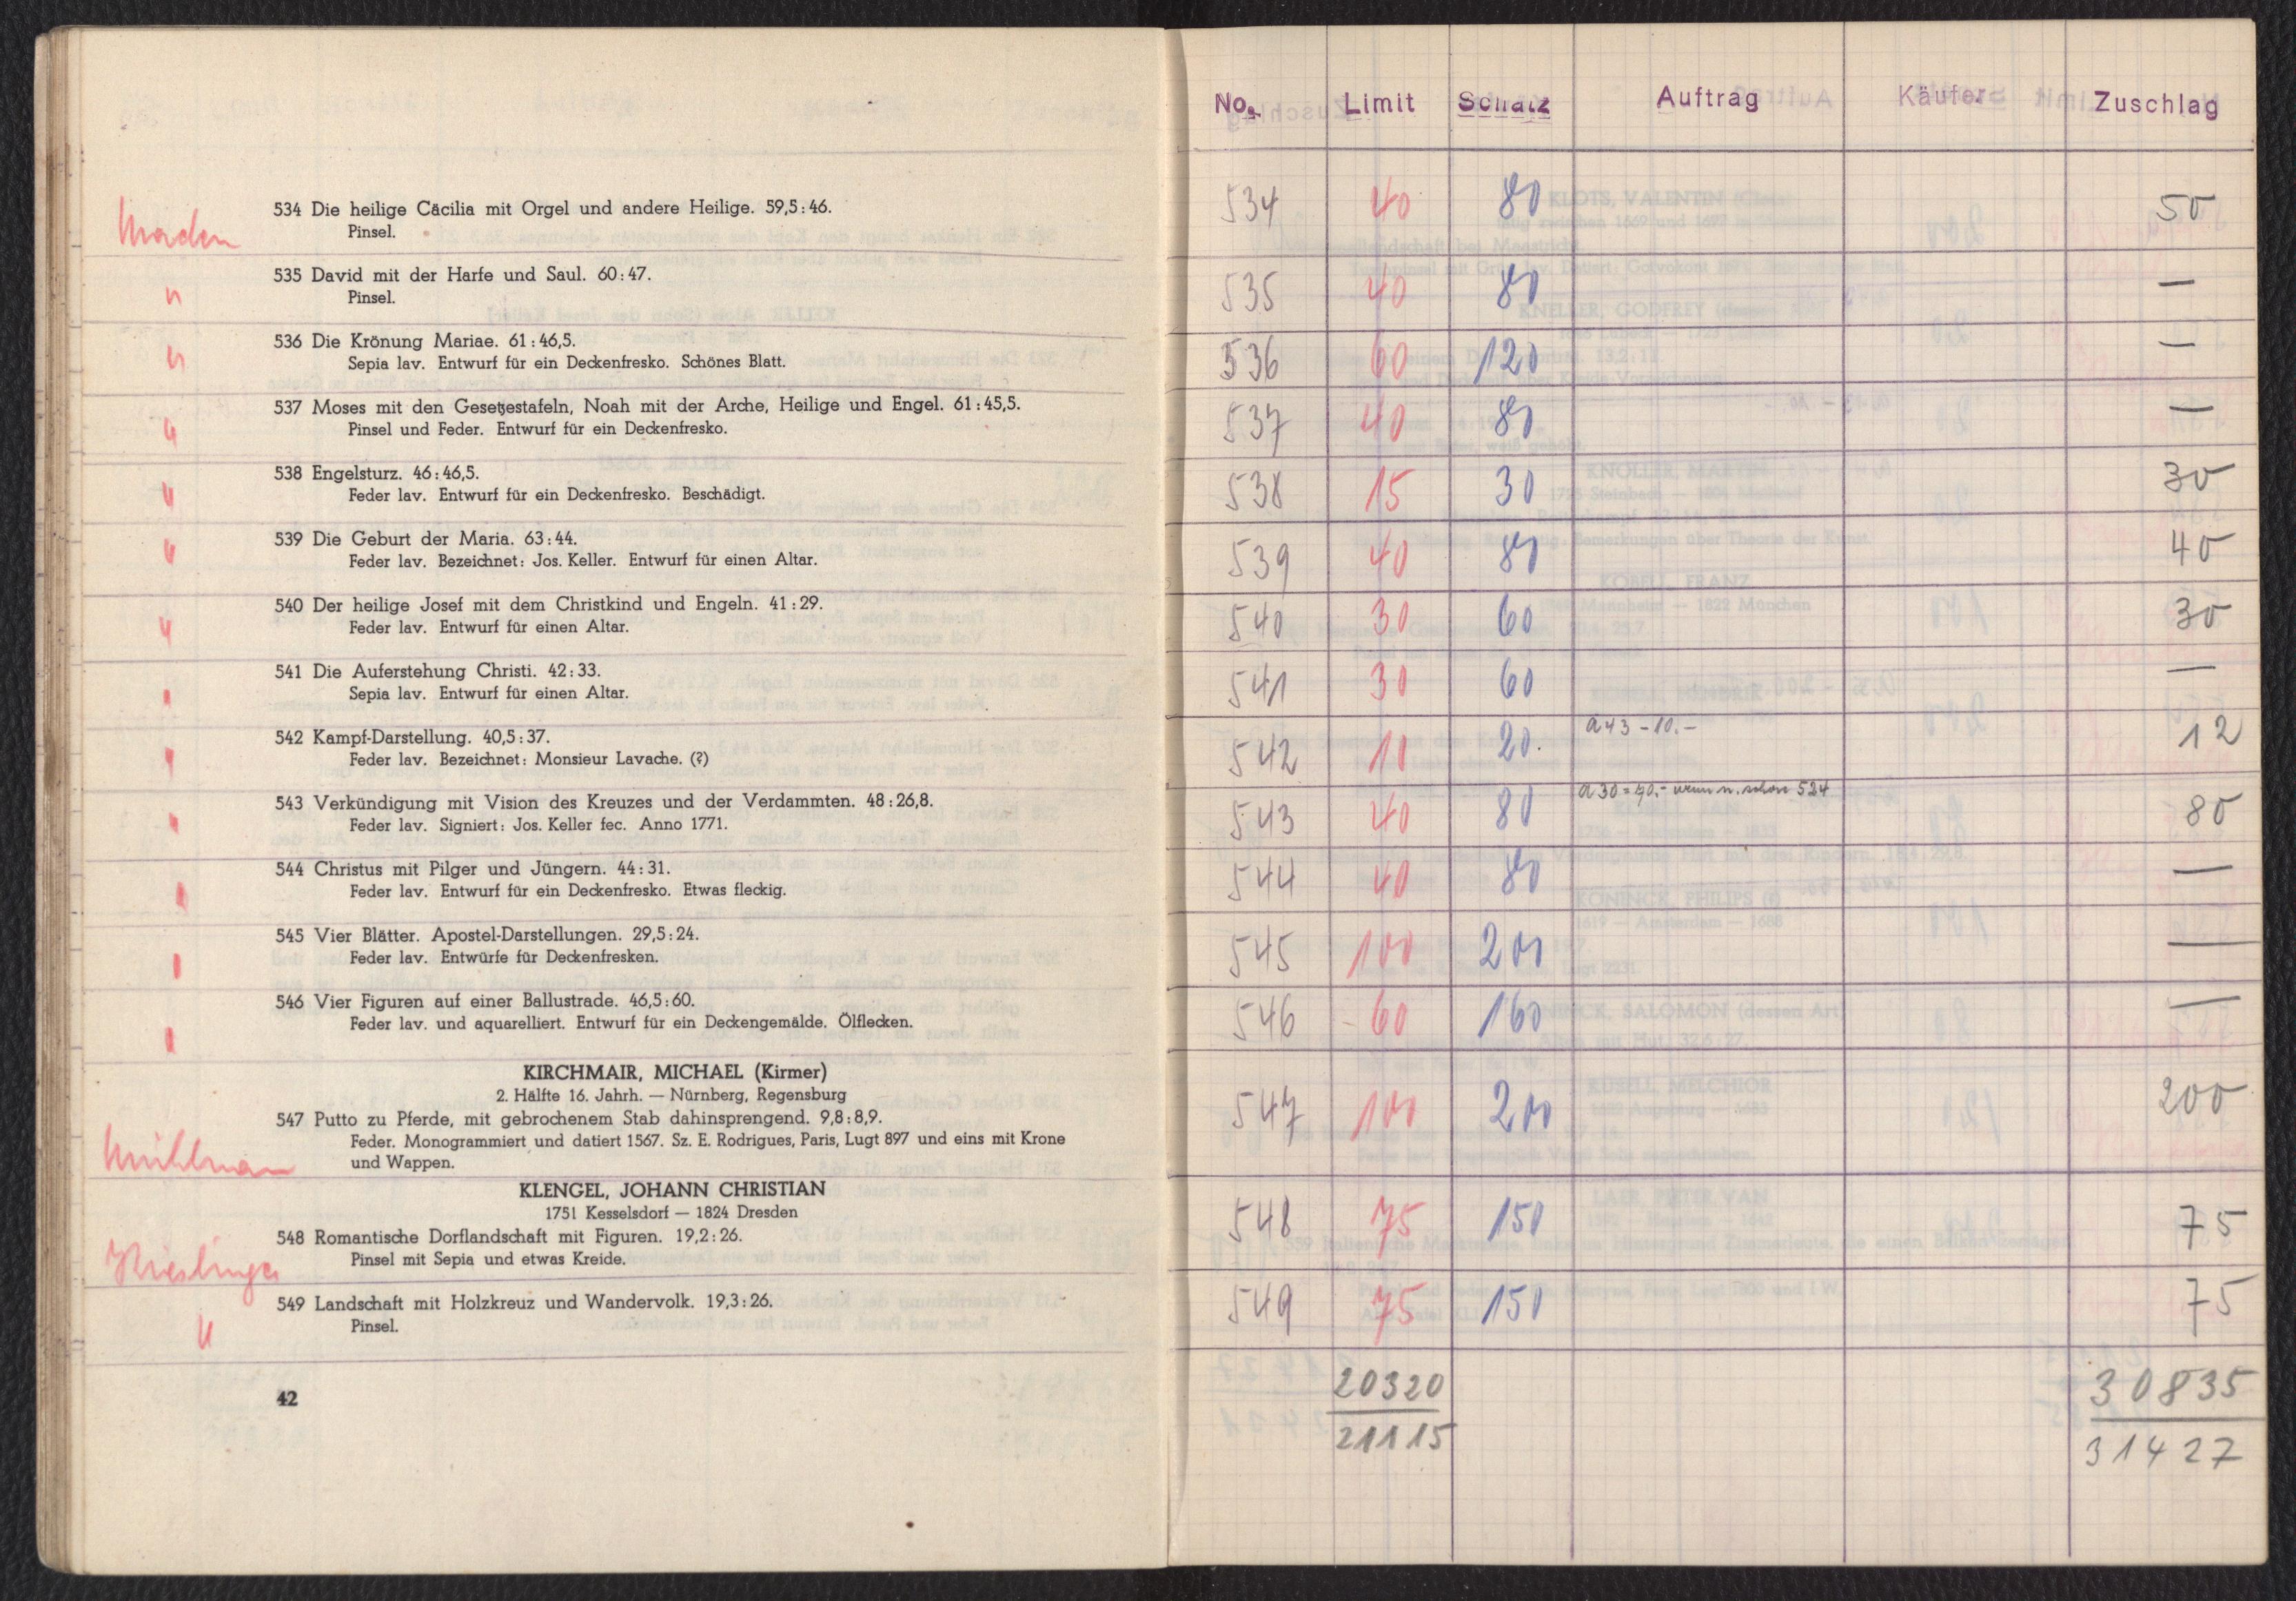 534 Die heilige Cäcilia mit Orgel und andere Heilige. 59,5:46.
Pinsel.
535 David mit der Harfe und Saul. 60:47.
Pinsel.
536 Die Krönung Mariae. 61:46,5.
Sepia lav. Entwurf für ein Deckenfresko. Schönes Blatt.
537 Moses mit den Gesetzestafeln, Noah mit der Arche, Heilige und Engel. 61:45,5.
Pinsel und Feder. Entwurf für ein Deckenfresko.
538 Engelsturz. 46:46,5.
Feder lav. Entwurf für ein Deckenfresko. Beschädigt.
539 Die Geburt der Maria. 63:44.
Feder lav. Bezeichnet: Jos. Keller. Entwurf für einen Altar.
540 Der heilige Josef mit dem Christkind und Engeln. 41:29.
Feder lav. Entwurf für einen Altar.
541 Die Auferstehung Christi. 42:33.
Sepia lav. Entwurf für einen Altar.
542 Kampf-Darstellung. 40,5:37.
Feder lav. Bezeichnet: Monsieur Lavache. (?)
543 Verkündigung mit Vision des Kreuzes und der Verdammten. 48:26,8.
Feder lav. Signiert: Jos. Keller fec. Anno 1771.
544 Christus mit Pilger und Jüngern. 44:31.
Feder lav. Entwurf für ein Deckenfresko. Etwas fleckig.
545 Vier Blätter. Apostel-Darstellungen. 29,5:24.
Feder lav. Entwürfe für Deckenfresken.
546 Vier Figuren auf einer Ballustrade. 46,5:60.
Feder lav. und aquarelliert. Entwurf für ein Deckengemälde. Ölflecken.
KIRCHMAIR, MICHAEL (Kirmer)
2. Hälfte 16. Jahrh. — Nürnberg, Regensburg
547 Putto zu Pferde, mit gebrochenem Stab dahinsprengend. 9,8:8,9.
Feder. Monogrammiert und datiert 1567. Sz. E. Rodrigues, Paris, Lugt 897 und eins mit Krone
und Wappen.
KLENGEL, JOHANN CHRISTIAN
1751 Kesselsdorf — 1824 Dresden
548 Romantische Dorflandschaft mit Figuren. 19,2:26.
Pinsel mit Sepia und etwas Kreide.
549 Landschaft mit Holzkreuz und Wandervolk. 19,3:26.
Pinsel.
42
No. Limit Schätz Auftrag Käufer Zuschlag
534 40 80 50
535 40 80 —
536 60 120 —
537 40 80 —
538 15 30 30
539 40 80 40
540 30 60 30
541 30 60 —
542 10 20. a 43 - 10.- 12
543 40 80 a 30 = 40.- wenn n. schon 524 80
544 40 80 —
545 100 200 —
546 60 160 —
547 100 200 200
548 75 150 75
549 75 150 75
20320 30835
21115 31427